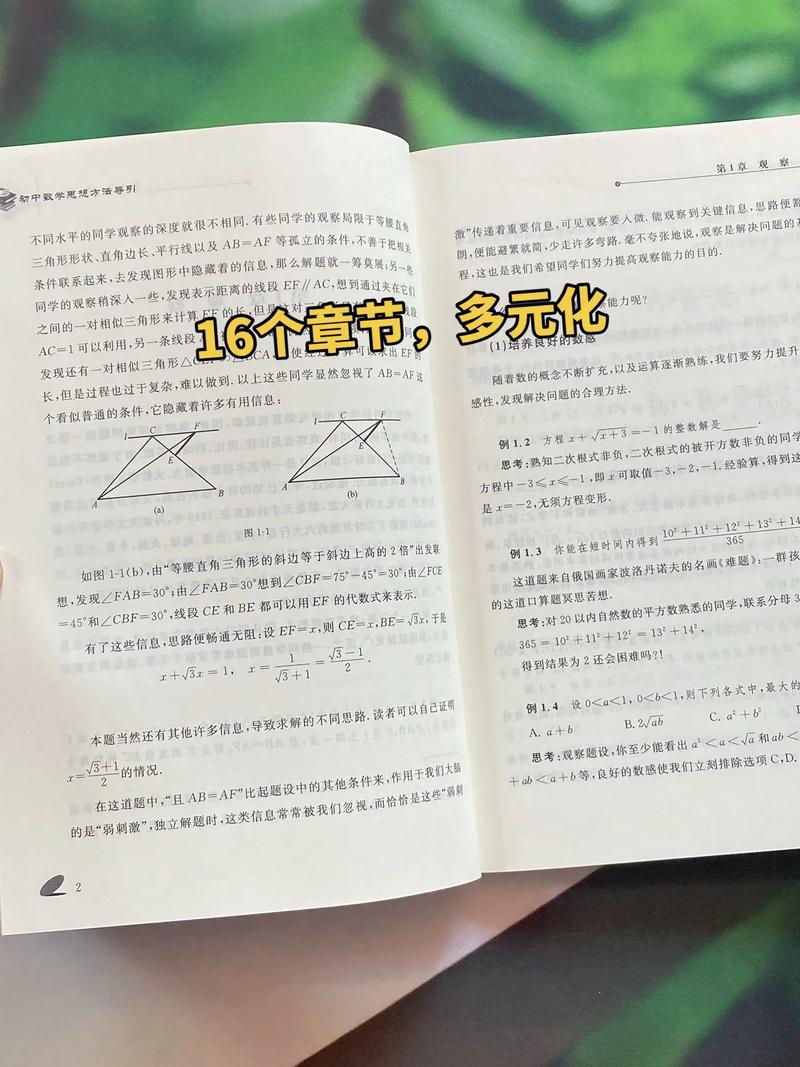 初中数学思想方法导引
不同水平的同学观察的深度就很不相同. 有些同学的观察局限于等腰直角
三角形形状、直角边长、平行线以及 AB=AF 等孤立的条件, 不善于把相关
条件联系起来, 去发现图形中隐藏着的信息, 那么解题就一筹莫展; 另一些
同学的观察稍深入一些, 发现表示距离的线段 EF∥AC, 想到通过夹在它们
之间的一对相似三角形来计算 EF 的长, 但是
AC=1 可以利用, 另一条线段
发现还有一对相似三角形
长, 但是过程也过于复杂, 难以做到. 以上这些同学显然忽视了 AB=AF 这
个看似普通的条件, 它隐藏着许多有用信息:
l C F
E
A B
(a)
l C F
E
A B
(b)
图 1-1
如图 1-1(b), 由“等腰直角三角形的斜边等于斜边上高的 2 倍”出发联
想, 发现∠FAB=30°; 由∠FAB=30°想到∠CBF=75°-45°=30°; 由∠FCE
=45°和∠CBF=30°, 线段 CE 和 BE 都可以用 EF 的代数式来表示.
有了这些信息, 思路便畅通无阻: 设 EF=x, 则 CE=x, BE=√3x, 于是
x+√3x=1, x=1/(√3+1)=(√3-1)/2.
本题当然还有其他许多信息, 导致求解的不同思路. 读者可以自己证明
x=(√3+1)/2 的情况.
在这道题中, “且 AB=AF”比起题设中的其他条件来, 作用于我们大脑
的是“弱刺激”, 独立解题时, 这类信息常常被我们忽视, 而恰恰是这些“弱刺
2
第1章 观 察
激”传递着重要信息, 可见观察要入微. 能观察到关键信息, 思路便豁
朗, 便能避繁就简, 少走许多弯路. 毫不夸张地说, 观察是解决问题的基
程, 这也是我们希望同学们努力提高观察能力的目的.
察能力呢?
16个章节，多元化
(1) 培养良好的数感
随着数的概念不断扩充, 以及运算逐渐熟练, 我们要努力提升
感性, 发现解决问题的合理方法.
例 1.2 方程 x+√(x+3)=-1 的整数解是______.
思考: 熟知二次根式非负, 二次根式的被开方数非负的同学
方程中 -3≤x≤-1, 即 x 可取值-3, -2, -1. 经验算, 得到这
是 x=-2, 无须方程变形.
例 1.3 你能在短时间内得到 (10²+11²+12²+13²+14²)/365
这道题来自俄国画家波洛丹诺夫的名画《难题》: 一群孩
的这道口算题冥思苦想.
思考: 对 20 以内自然数的平方数熟悉的同学, 联系分母 3
365=10²+11²+12²=13²+14²,
得到结果为 2 还会困难吗?!
例 1.4 设 0<a<1, 0<b<1, 则下列各式中, 最大的
A. a+b B. 2√ab C. a²+b²
思考: 观察题设, 你至少能看出 a²<a<√a 和 ab<
+ab<a+b 等, 良好的数感使我们立刻排除选项 C, D.